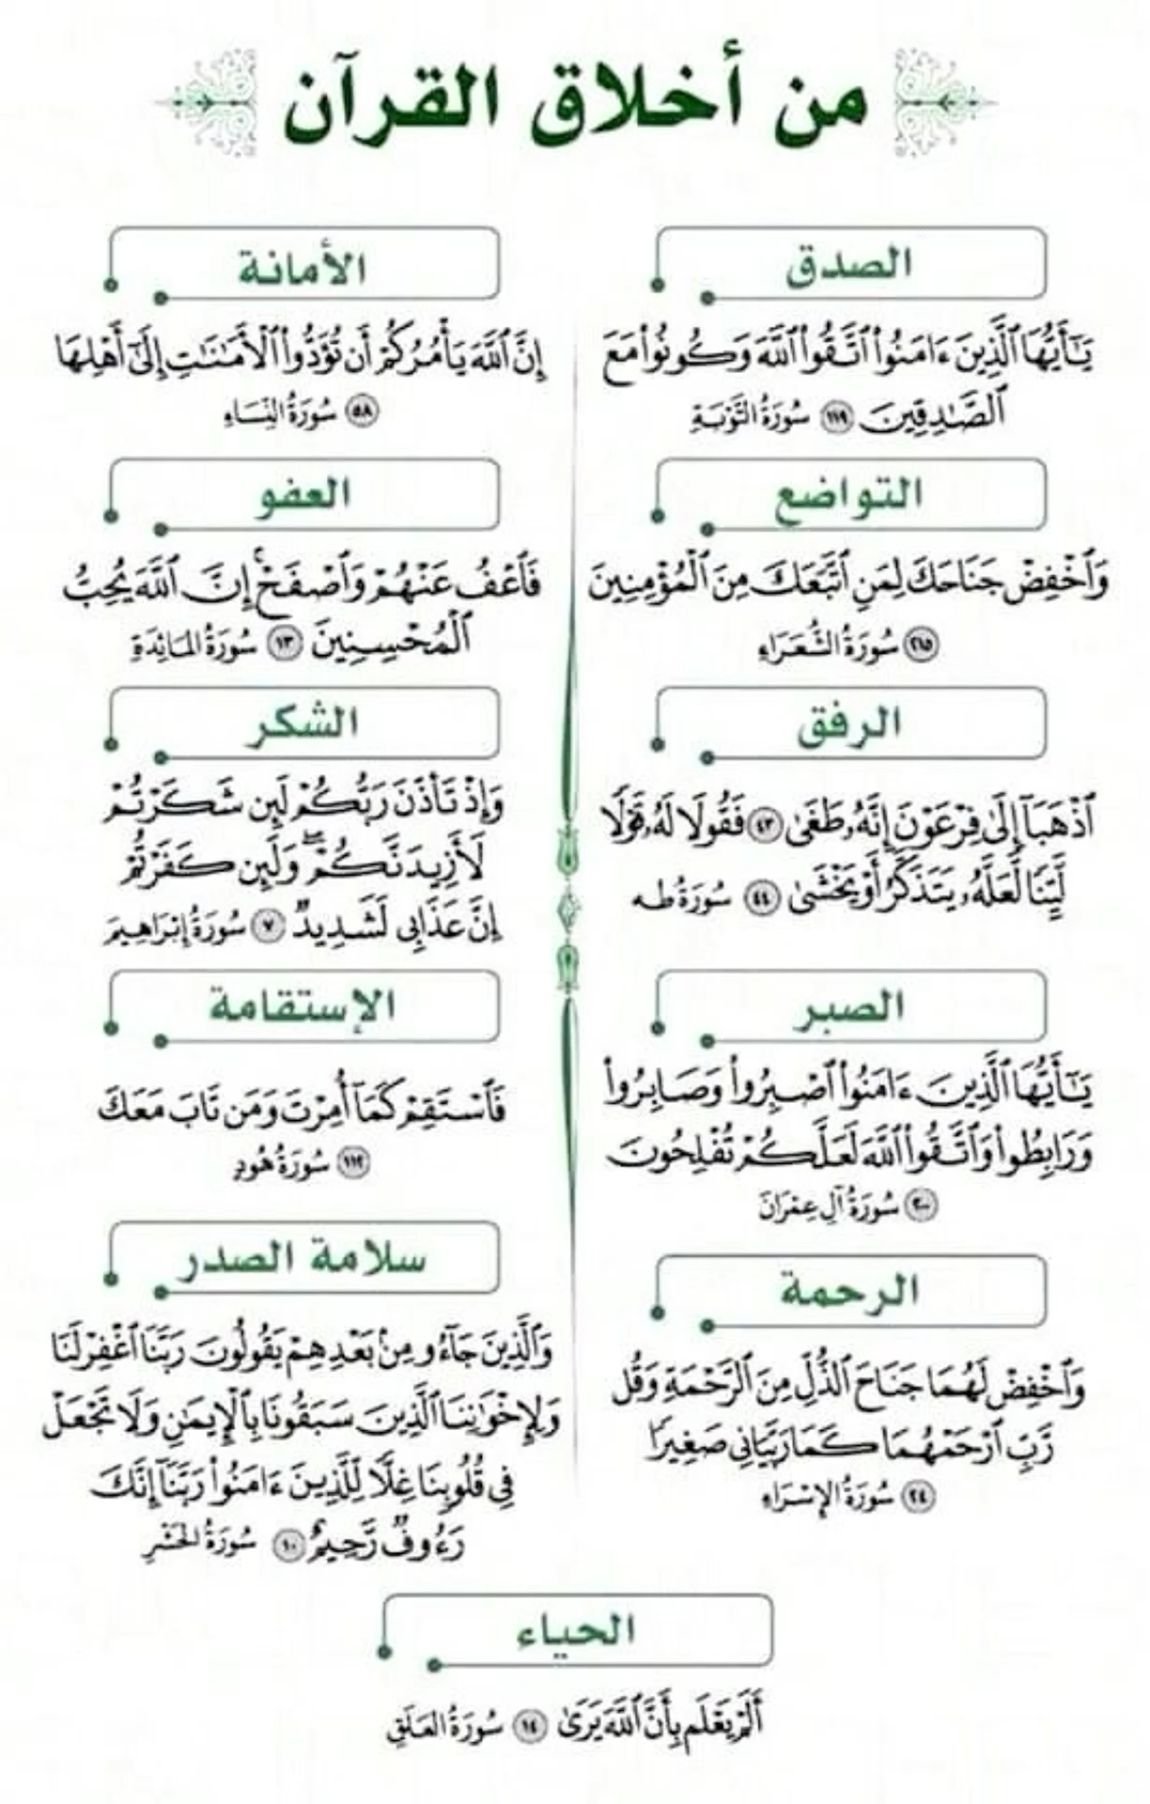 من أخلاق القرآن
الصدق
يَٰٓأَيُّهَا ٱلَّذِينَ ءَامَنُوا۟ ٱتَّقُوا۟ ٱللَّهَ وَكُونُوا۟ مَعَ
ٱلصَّٰدِقِينَ ١١٩ سُورَةُ التَّوْبَةِ
التواضع
وَٱخْفِضْ جَنَاحَكَ لِمَنِ ٱتَّبَعَكَ مِنَ ٱلْمُؤْمِنِينَ
٢١٥ سُورَةُ الشُّعَرَاءِ
الرفق
ٱذْهَبَآ إِلَىٰ فِرْعَوْنَ إِنَّهُۥ طَغَىٰ ٤٣ فَقُولَا لَهُۥ قَوْلًا
لَّيِّنًا لَّعَلَّهُۥ يَتَذَكَّرُ أَوْ يَخْشَىٰ ٤٤ سُورَةُ طه
الصبر
يَٰٓأَيُّهَا ٱلَّذِينَ ءَامَنُوا۟ ٱصْبِرُوا۟ وَصَابِرُوا۟
وَرَابِطُوا۟ وَٱتَّقُوا۟ ٱللَّهَ لَعَلَّكُمْ تُفْلِحُونَ
٢٠٠ سُورَةُ آلِ عِمْرَانَ
الرحمة
وَٱخْفِضْ لَهُمَا جَنَاحَ ٱلذُّلِّ مِنَ ٱلرَّحْمَةِ وَقُل
رَّبِّ ٱرْحَمْهُمَا كَمَا رَبَّيَانِى صَغِيرًا
٢٤ سُورَةُ الإِسْرَاءِ
الأمانة
إِنَّ ٱللَّهَ يَأْمُرُكُمْ أَن تُؤَدُّوا۟ ٱلْأَمَٰنَٰتِ إِلَىٰٓ أَهْلِهَا
٥٨ سُورَةُ النِّسَاءِ
العفو
فَٱعْفُ عَنْهُمْ وَٱصْفَحْ ۚ إِنَّ ٱللَّهَ يُحِبُّ
ٱلْمُحْسِنِينَ ١٣ سُورَةُ المَائِدَةِ
الشكر
وَإِذْ تَأَذَّنَ رَبُّكُمْ لَئِن شَكَرْتُمْ
لَأَزِيدَنَّكُمْ ۖ وَلَئِن كَفَرْتُمْ
إِنَّ عَذَابِى لَشَدِيدٌ ٧ سُورَةُ إِبْرَاهِيمَ
الإستقامة
فَٱسْتَقِمْ كَمَآ أُمِرْتَ وَمَن تَابَ مَعَكَ
١١٢ سُورَةُ هُودٍ
سلامة الصدر
وَٱلَّذِينَ جَآءُو مِنۢ بَعْدِهِمْ يَقُولُونَ رَبَّنَا ٱغْفِرْ لَنَا
وَلِإِخْوَٰنِنَا ٱلَّذِينَ سَبَقُونَا بِٱلْإِيمَٰنِ وَلَا تَجْعَلْ
فِى قُلُوبِنَا غِلًّا لِّلَّذِينَ ءَامَنُوا۟ رَبَّنَآ إِنَّكَ
رَءُوفٌ رَّحِيمٌ ١٠ سُورَةُ الحَشْرِ
الحياء
أَلَمْ يَعْلَم بِأَنَّ ٱللَّهَ يَرَىٰ ١٤ سُورَةُ العَلَقِ